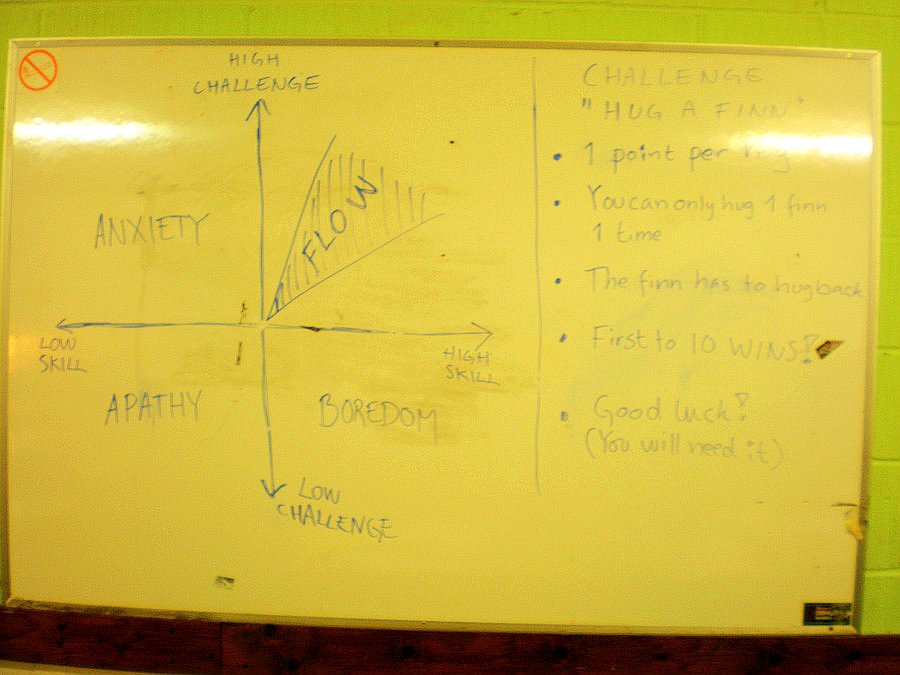 HIGH
CHALLENGE
ANXIETY
FLOW
LOW
SKILL
HIGH
SKILL
APATHY
BOREDOM
LOW
CHALLENGE
CHALLENGE
"HUG A FINN"
• 1 point per hug
• You can only hug 1 finn
1 time
• The finn has to hug back
• First to 10 WINS!
• Good luck!
(You will need it)